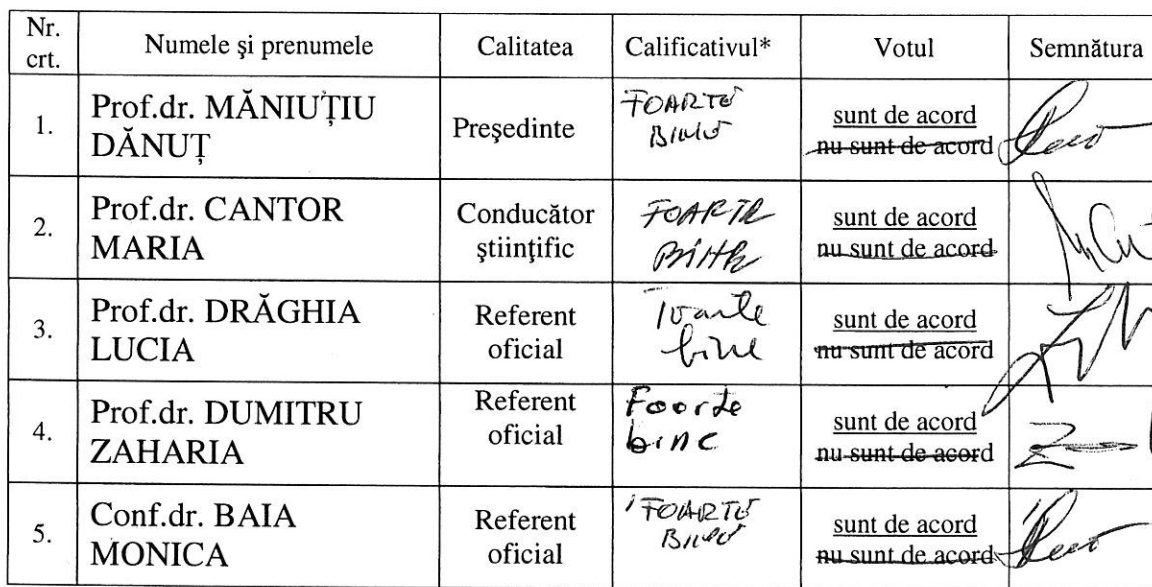 Nr. crt. Numele şi prenumele Calitatea Calificativul* Votul Semnătura
1. Prof.dr. MĂNIUŢIU DĂNUŢ Preşedinte FOARTE BINE sunt de acord nu sunt de acord
2. Prof.dr. CANTOR MARIA Conducător ştiinţific FOARTE BINE sunt de acord nu sunt de acord
3. Prof.dr. DRĂGHIA LUCIA Referent oficial Foarte bine sunt de acord nu sunt de acord
4. Prof.dr. DUMITRU ZAHARIA Referent oficial Foarte bine sunt de acord nu sunt de acord
5. Conf.dr. BAIA MONICA Referent oficial FOARTE BINE sunt de acord nu sunt de acord